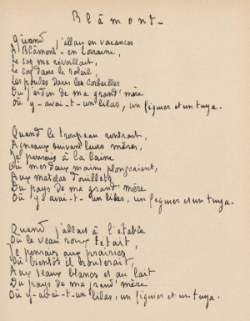 Blâmont-
Quand j'allais en vacances
A Blâmont- en Lorraine,
Le coq me réveillait,
Le coq dans le soleil,
Les poules dans les corbeilles
Du jardin de ma grand' mère
Où y-avai-t-un lilas, un figuier et un tuya.
Quand le troupeau rentrait,
Agneaux suivant leurs mères,
Je pensais à la laine
Où mes deux mains plongeaient,
Aux matelas douillets
Du pays de ma grand' mère
Où y avai-t-un lilas, un figuier et un tuya.
Quand j'allais à l'étable
Où le veau roux tétait,
Je pensais aux prairies
Où bientôt il brouterait,
Aux seaux blancs et au lait
Du pays de ma grand' mère
Où y-avai-t-un lilas, un figuier et un tuya.